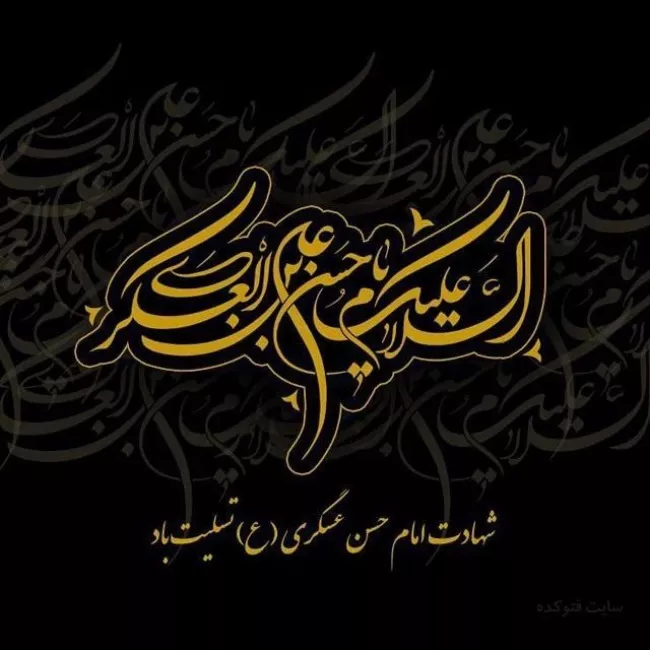 السلام علیک یا حسن بن علی العسکری
شهادت امام حسن عسکری (ع) تسلیت باد
سایت فتوکده